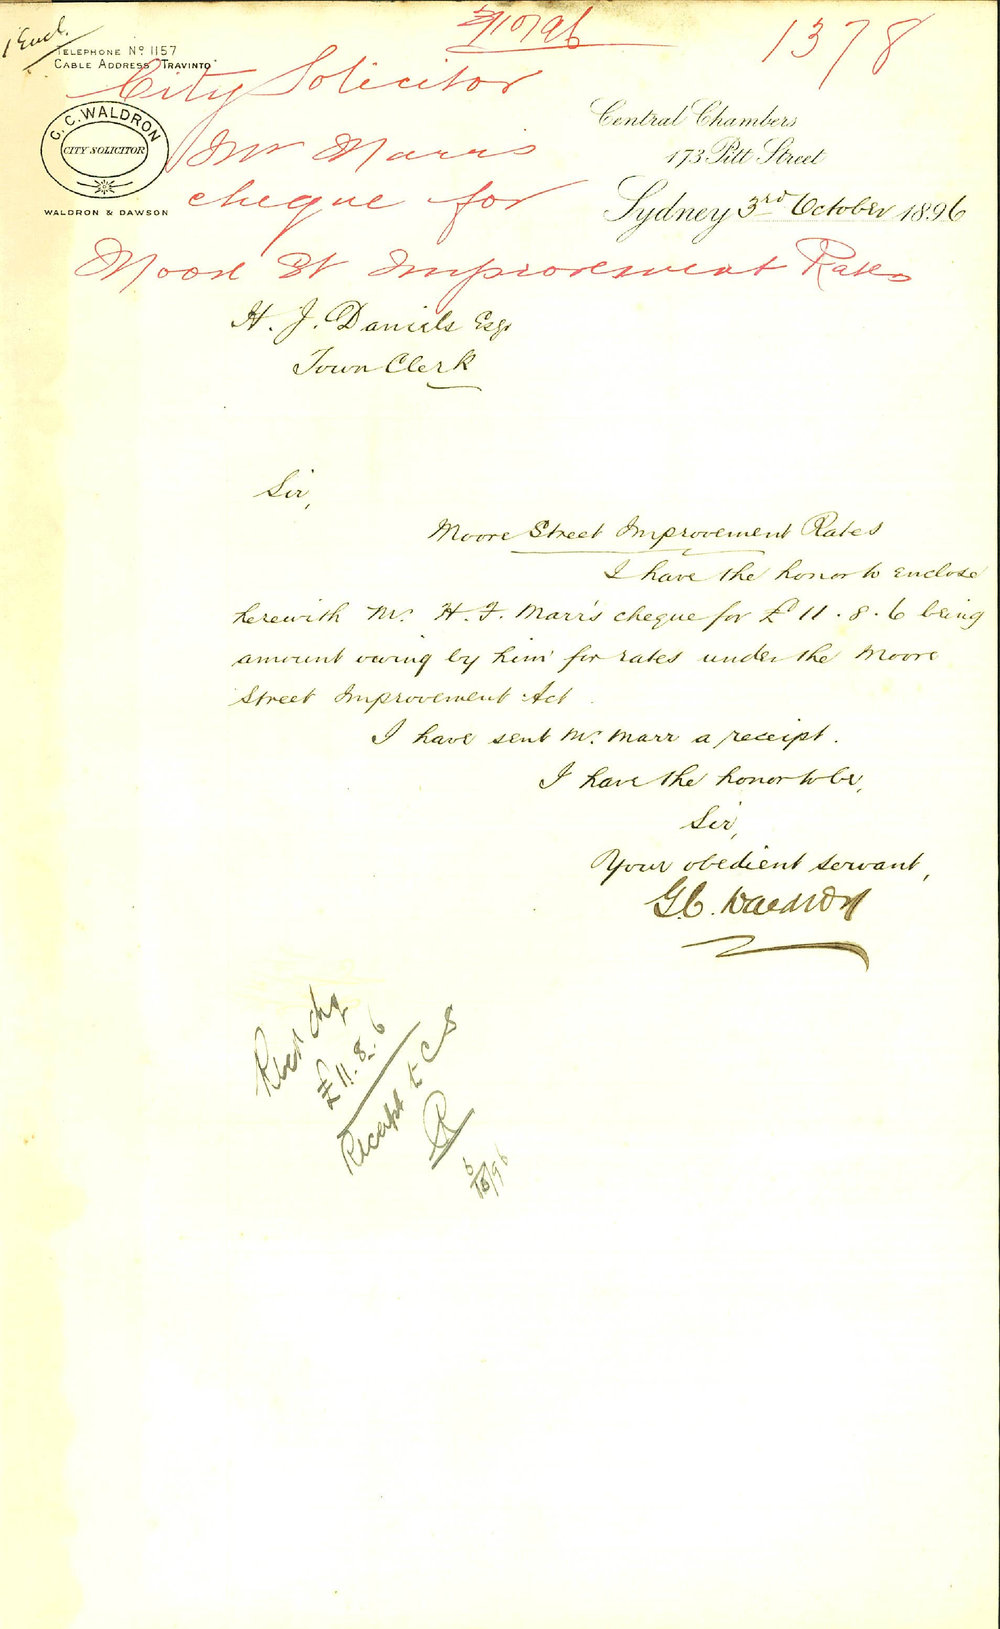 1 Encl.
5/10/96
1378
TELEPHONE No 1157
CABLE ADDRESS "TRAVINTO"
City Solicitor
G. C. WALDRON
CITY SOLICITOR
WALDRON & DAWSON
Central Chambers
173 Pitt Street
Sydney 3rd October 1896
Mr Marr's
cheque for
Moore St Improvement Rates
H. J. Daniels Esqr
Town Clerk
Sir,
Moore Street Improvement Rates
I have the honor to enclose
herewith Mr. H. F. Marr's cheque for £11.8.6 being
amount owing by him for rates under the Moore
Street Improvement Act.
I have sent Mr. Marr a receipt.
I have the honor to be,
Sir,
Your obedient servant,
G.C. Waldron
Recd chq
£11.8.6
Receipt to CS
6/10/96